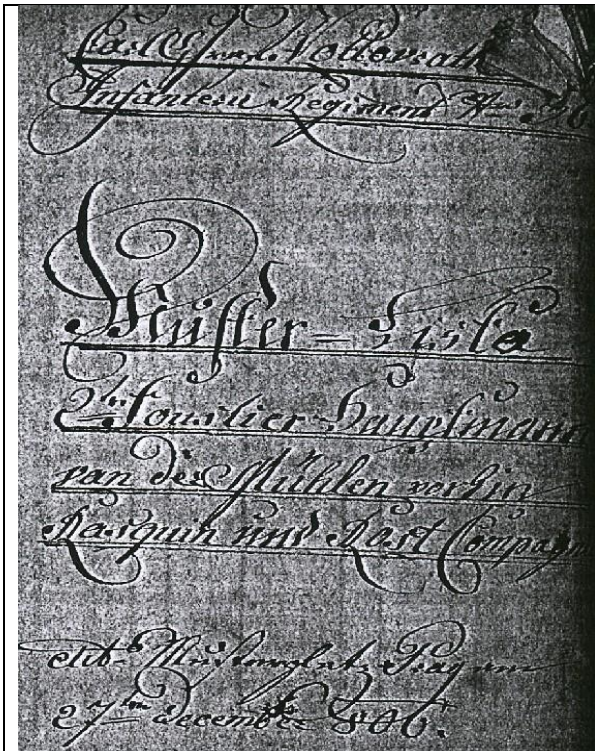 Carl Kollowrath
Infanterie Regiment Nro 36
Muster-Lista
2ten Fouslier Hauptmann
van der Mühlen vorhin
Rasquin und Post Compagn
Musterplatz Prag am
27ten december 806.